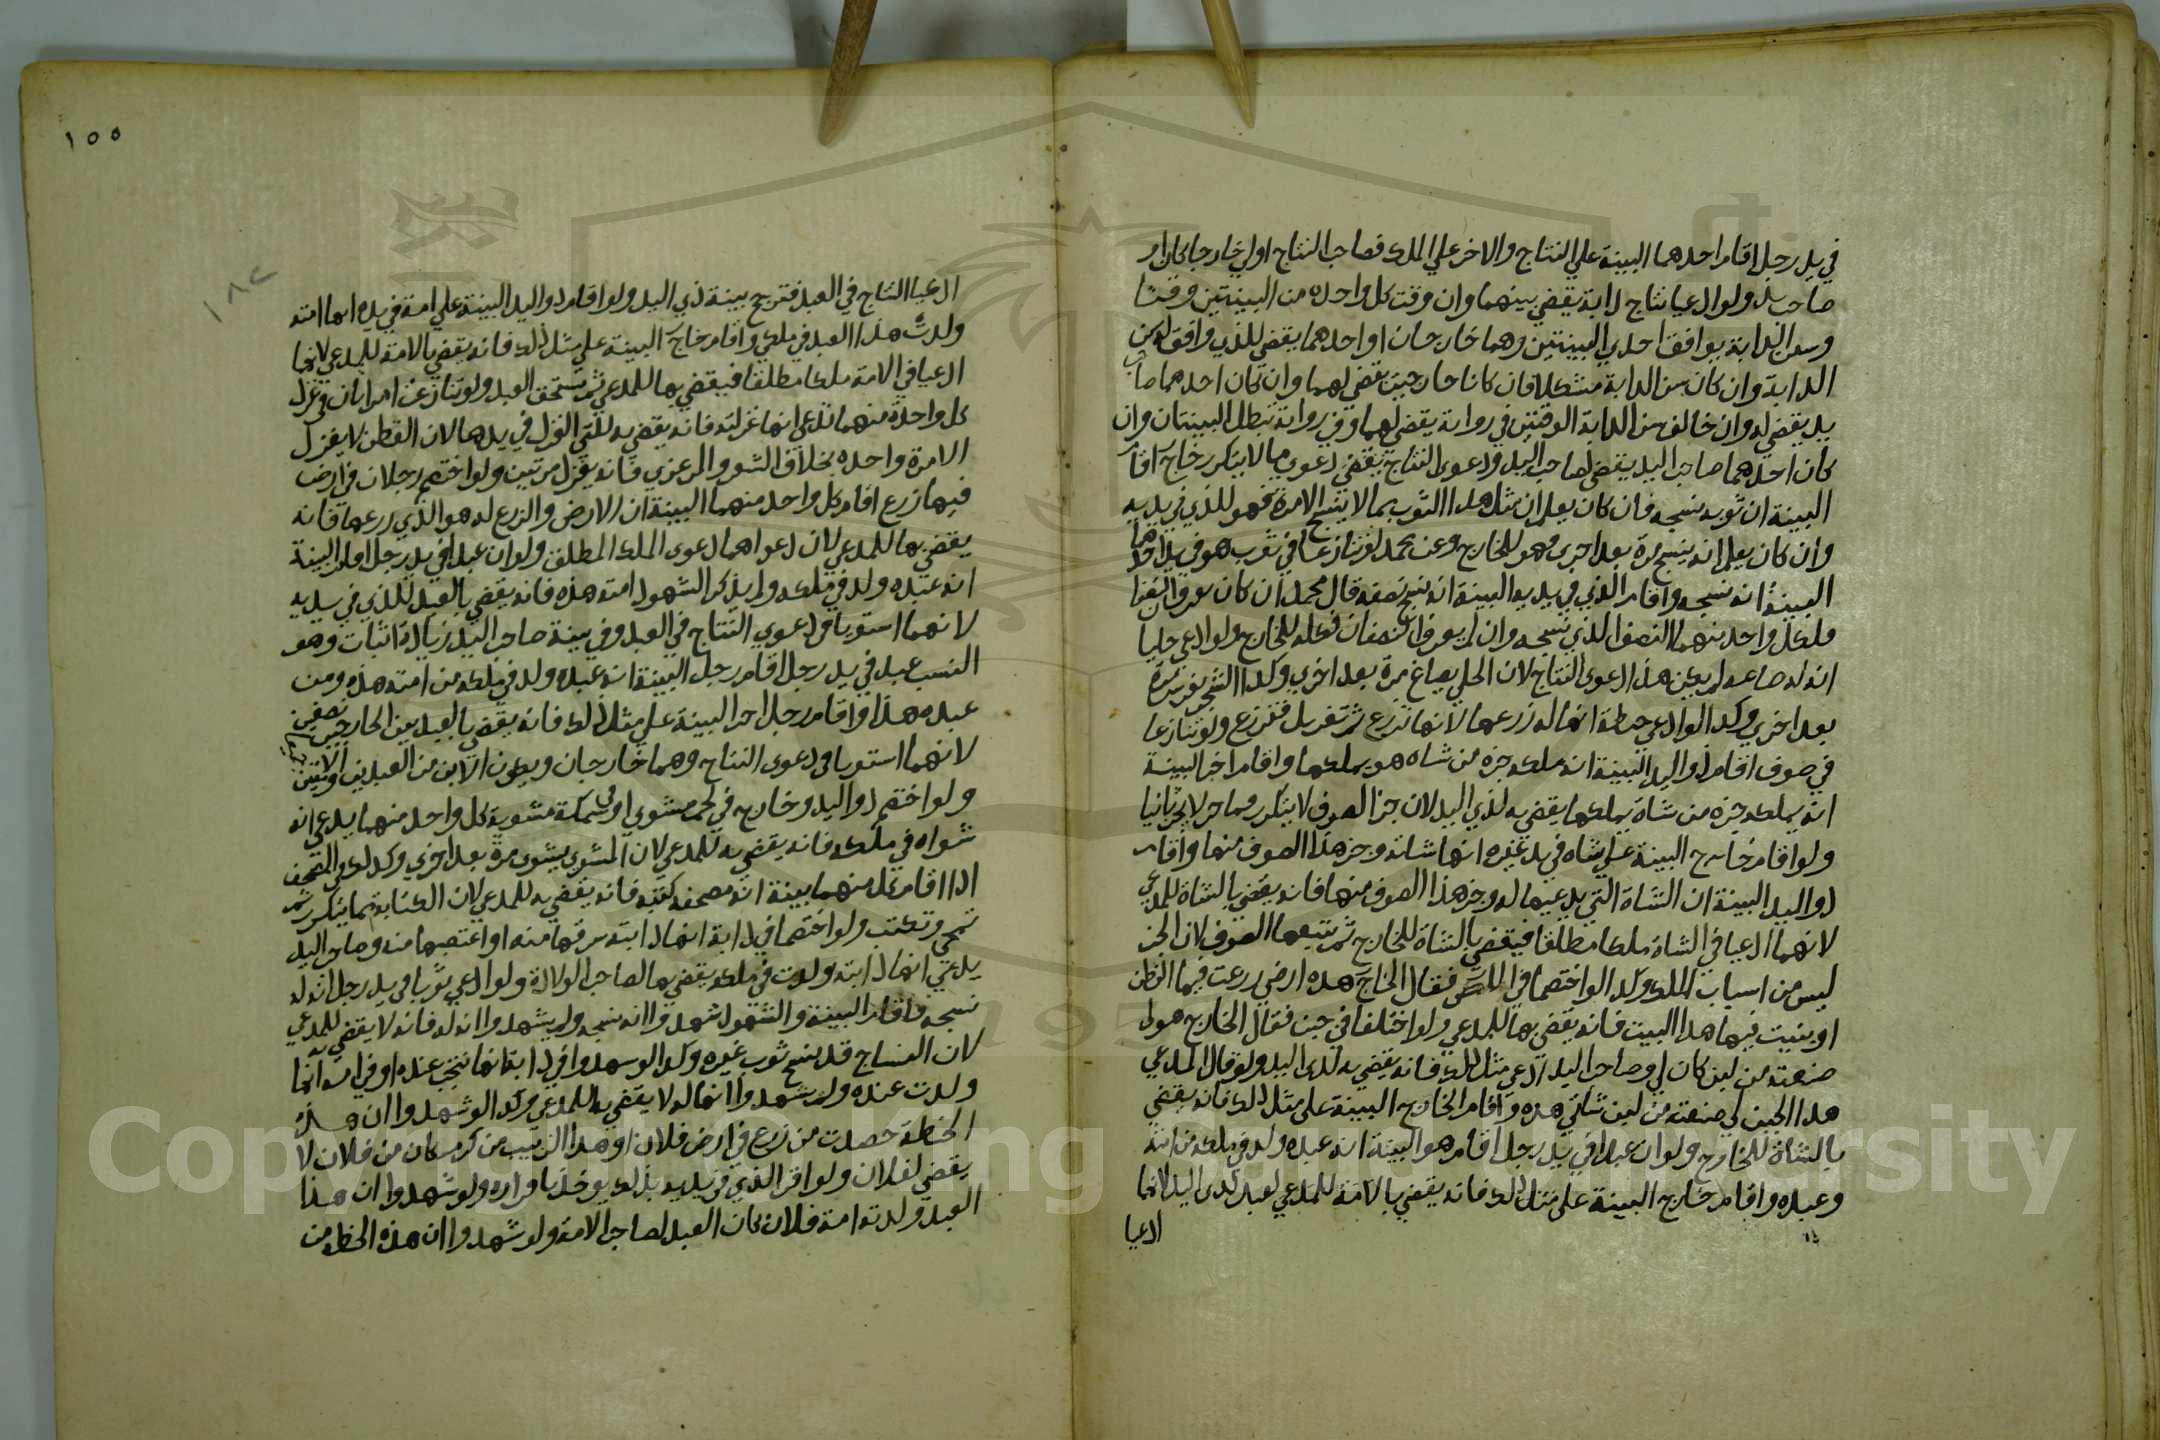 في يد رجل اقام احدهما البينة علي النتاج والاخر علي الملك فصاحب النتاج اولي خارجا كان او
صاحب يد ولو ادعيا نتاج دابة يقضي بينهما وان وقت كل واحدة من البينتين وقتا
وسن الدابة يوافق احدي البينتين وهما خارجان او احدهما يقضي للذي وافق سن
الدابة وان كان سن الدابة مشكلا فان كانا خارجين يقضي لهما وان كان احدهما صاحب
يد يقضي له وان خالف سن الدابة الوقتين في رواية يقضي لهما وفي رواية تبطل البينتان وان
كان احدهما صاحب اليد يقضي لصاحب اليد ودعوي النتاج يقضي دعوي ما لا يتكرر خارج اقام
البينة ان ثوبه نسجه فان كان يعلم ان مثل هذا الثوب مما لا ينسج الا مرة فهو للذي في يديه
وان كان يعلم انه ينسج مرة بعد اخري فهو للخارج وعن محمد لو تنازعا في ثوب هو في يد احدهما
البينة انه نسجه واقام الذي في يديه البينة انه نسج نصفه قال محمد ان كان يعرفا
فلكل واحد منهما النصف الذي نسجه وان لم يعرف النصفان فكله للخارج ولو ادعي حليا
انه له صاغه لم يكن هذا دعوي النتاج لان الحلي يصاغ مرة بعد اخري وكذا الشجر يغرس مرة
بعد اخري وكذا لو ادعي حنطة انها له زرعها لانها تزرع ثم تغربل فتزرع ولو تنازعا
في صوف اقام ذو اليد البينة انه ملكه جزه من شاة هو يملكها واقام اخر البينة
انه يملكه جزه من شاة يملكها يقضي به لذي اليد لان جز الصوف لا يتكرر وما جز لا يجز ثانيا
ولو اقام خارج البينة علي شاة في يد غيره انها شاته وجز هذا الصوف منها واقام
ذو اليد البينة ان الشاة التي يدعيها له وجز هذا الصوف منها فانه يقضي بالشاة للمدعي
لانهما ادعيا في الشاة ملكا مطلقا فيقضي بالشاة للخارج ثم تتبعها الصوف لان الجز
ليس من اسباب الملك وكذا لو اختصما في فقال الخارج هذه ارضي زرعت فيها القطن
او بنيت فيها هذا البيت فانه يقضي بها للمدعي ولو اختلفا في جبن فقال الخارج هو لي
صنعته من لبن كان لي وصاحب اليد ادعي مثل ذلك فانه يقضي به لذي اليد ولو قال المدعي
هذا الجبن لي صنعته من لبن شاتي هذه واقام الخارج البينة علي مثل ذلك فانه يقضي
بالشاة للخارج ولو ان عبدا في يد رجل اقام هو البينة انه عبده ولد في ملكه من امته
وعبده واقام خارج البينة علي مثل ذلك فانه يقضي بالامة للمدعي لعبد لذي اليد لانهما
ادعيا
١٥٥
١٨٢
ادعيا النتاج في العبد فترجح بينة ذي اليد ولو اقام ذو اليد البينة علي امة في يده انها امته
ولدت هذا العبد في ملكي واقام خارج البينة علي مثل ذلك فانه يقضي بالامة للمدعي لانهما
ادعيا في الامة ملكا مطلقا فيقضي بها للمدعي ثم يستحق العبد ولو تنازعت امراتان في غزل
كل واحدة منهما تدعي انها غزلته فانه يقضي به للتي الغزل في يدها لان القطن لا يغزل
الا مرة واحدة بخلاف الشعر والمرعزي فانه يغزل مرتين ولو اختصم رجلان في ارض
فيها زرع اقام كل واحد منهما البينة ان الارض والزرع له هو الذي زرعها فانه
يقضي بها للمدعي لان دعواهما دعوي الملك المطلق ولو ان عبدا في يد رجل اقام البينة
انه عبده ولد في ملكه ولم يذكر الشهود امته هذه فانه يقضي بالعبد للذي في يديه
لانهما استويا في دعوي النتاج في العبد وفي بينة صاحب اليد زيادة اثبات وهو
النسب عبد في يد رجل اقام رجل البينة انه عبده ولد في ملكه من امته هذه ومن
عبده هذا واقام رجل اخر البينة علي مثل ذلك فانه يقضي بالعبد بين الخارجين نصفين
لانهما استويا في دعوي النتاج وهما خارجان ويكون الابن من العبدين والامتين
ولو اختصم ذو اليد وخارج في لحم مشوي او في سمكة مشوية كل واحد منهما يدعي انه
شواه في ملكه فانه يقضي به للمدعي لان المشوي يشوي مرة بعد اخري وكذلك في المصحف
اذا اقام كل منهما بينة انه مصحفه كتبه فانه يقضي به للمدعي لان الكتابة مما يتكرر
تمحي وتكتب ولو اختصما في دابة انها دابته سرقها منه او اغتصبها منه وصاحب اليد
يدعي انها دابته ولدت في ملكه يقضي بها لصاحب الولادة ولو ادعي ثوبا في يد رجل انه له
نسجه فاقام البينة والشهود شهدوا انه نسجه ولم يشهدوا انه له فانه لا يقضي به للمدعي
لان النساج قد ينسج ثوب غيره وكذا لو شهدوا في دابة انها نتجت عنده او في امة انها
ولدت عنده ولم يشهدوا انها له لا يقضي به للمدعي وكذا لو شهدوا ان هذه
الحنطة حصدت من زرع في ارض فلان او هذا الزبيب من كرم كان من فلان لا
يقضي لفلان ولو اقر الذي في يديه بذلك يوخذ باقراره ولو شهدوا ان هذا
العبد ولدته امة فلان كان العبد لصاحب الامة ولو شهدوا ان هذه الحنطة من